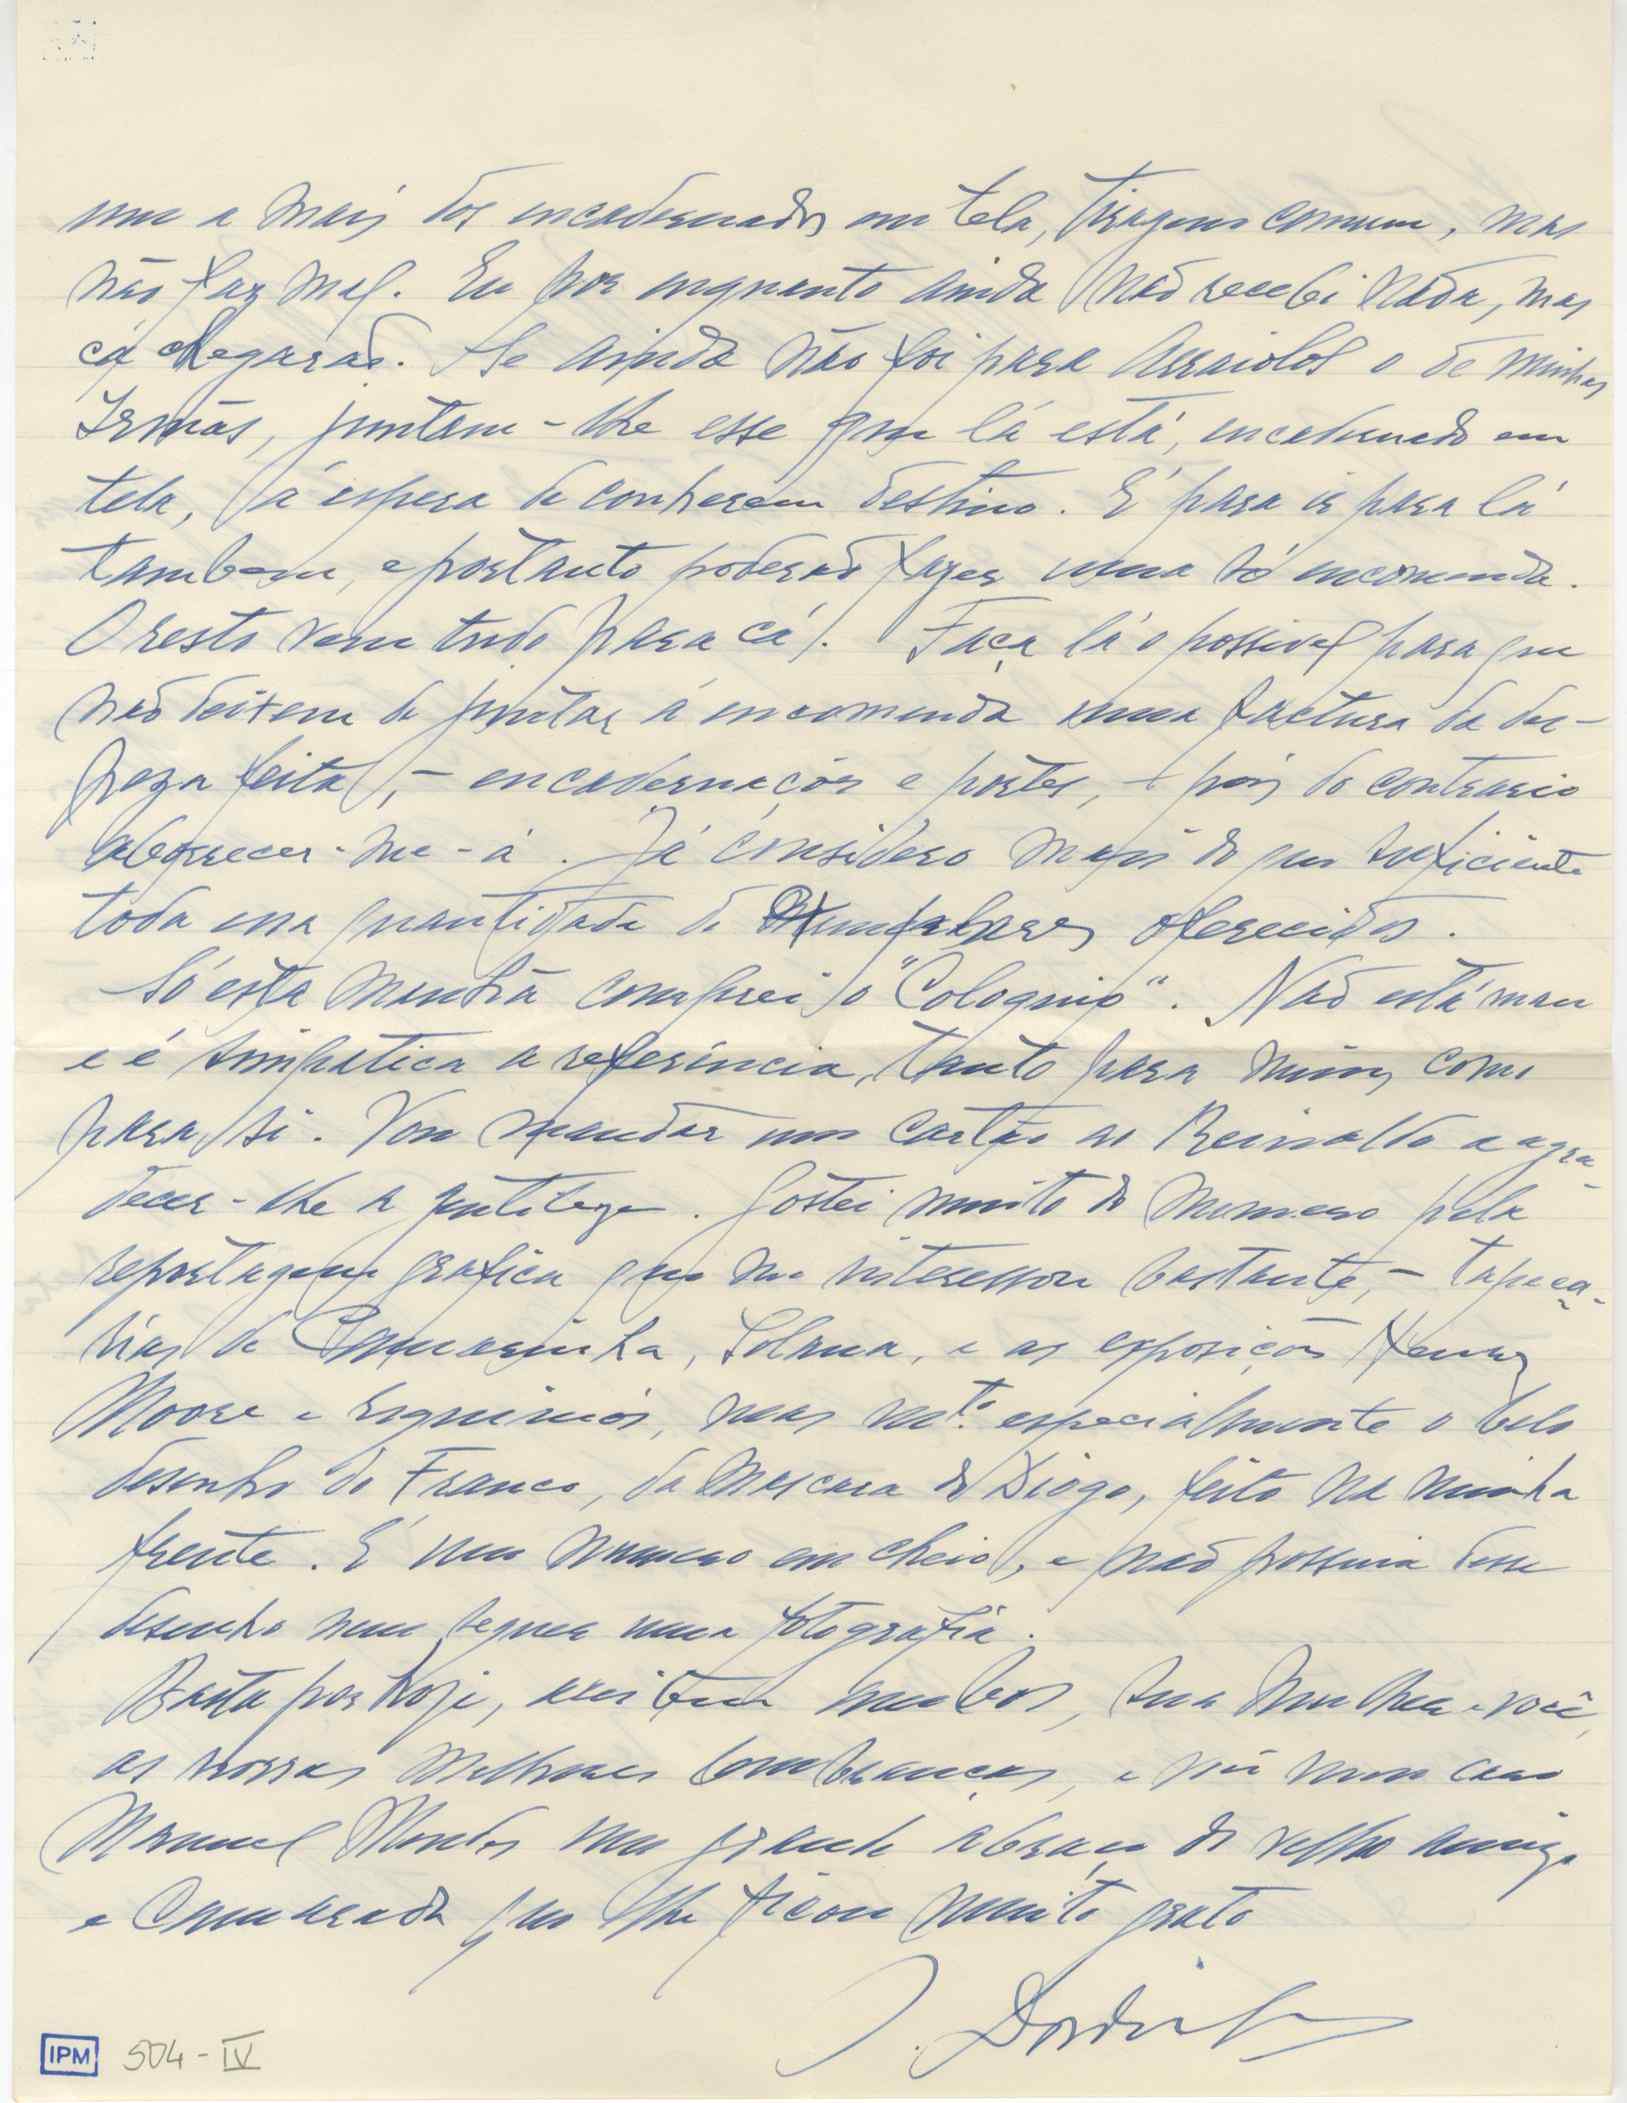 um a mais dos encadernados em tela, tiragem comum, mas
não faz mal. Eu por enquanto ainda não recebi nada, mas
cá chegarão. Se ainda não foi para Arraiolos o de minhas
Irmãs, juntem-lhe esse que lá está, encadernado em
tela, á espera de conhecerem destino. É para ir para lá
tambem, e portanto poderão fazer uma só encomenda.
O resto vem tudo para cá. Faça lá o possivel para que
não deixem de juntar á encomenda uma factura da des-
peza feita, - encadernações e portes, - pois do contrario
aborrecer-me-á. Já considero mais do que suficiente
toda essa quantidade de exemplares oferecidos.
Só esta manhã comprei o "Coloquio". Não está mau
e é simpatica a referência, tanto para mim, como
para si. Vou mandar um cartão ao Reinaldo a agra-
decer-lhe a gentileza. Gostei muito do numero pela
reportagem grafica que me interessou bastante, - tapeça-
rias de Camarinha, Solana, e as exposições Henry
Moore e esquimós, mas mt.º especialmente o belo
desenho do Franco, da mascara do Diogo, feito na minha
frente. É um numero em cheio, e não possuia desse
desenho nem sequer uma fotografia.
Basta por hoje, aceitem ambos, sua mulher e você,
as nossas melhores lembranças, e meu caro
Manuel Mendes um grande abraço do velho amigo
e camarada que lhe ficou muito grato
IPM 504-IV